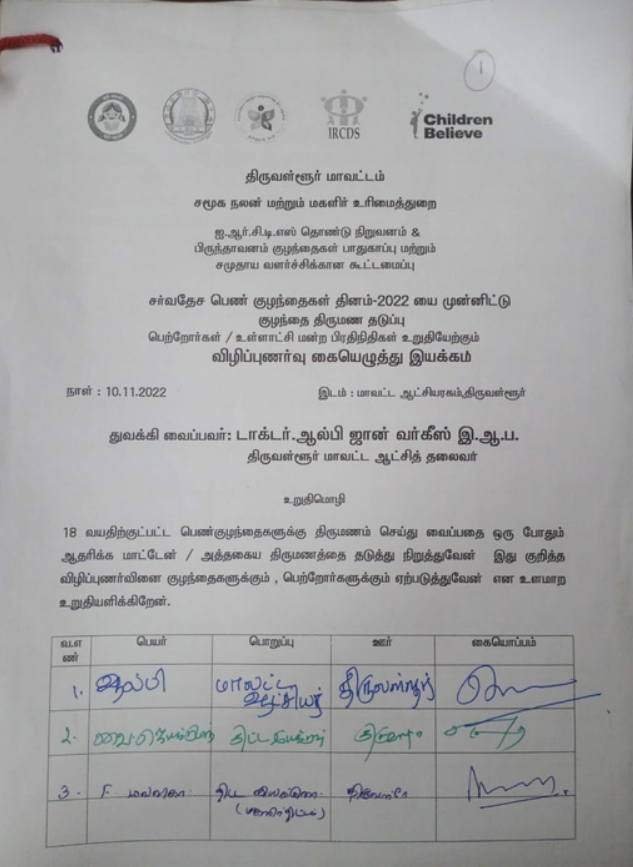 1
IRCDS
Children
Believe
திருவள்ளூர் மாவட்டம்
சமூக நலன் மற்றும் மகளிர் உரிமைத்துறை
ஐ.ஆர்.சி.டி.எஸ் தொண்டு நிறுவனம் &
பிருந்தாவனம் குழந்தைகள் பாதுகாப்பு மற்றும்
சமுதாய வளர்ச்சிக்கான கூட்டமைப்பு
சர்வதேச பெண் குழந்தைகள் தினம்-2022 யை முன்னிட்டு
குழந்தை திருமண தடுப்பு
பெற்றோர்கள் / உள்ளாட்சி மன்ற பிரதிநிதிகள் உறுதியேற்கும்
விழிப்புணர்வு கையெழுத்து இயக்கம்
நாள் : 10.11.2022 இடம் : மாவட்ட ஆட்சியரகம்,திருவள்ளூர்
துவக்கி வைப்பவர்: டாக்டர்.ஆல்பி ஜான் வர்கீஸ் இ.ஆ.ப.
திருவள்ளூர் மாவட்ட ஆட்சித் தலைவர்
உறுதிமொழி
18 வயதிற்குட்பட்ட பெண்குழந்தைகளுக்கு திருமணம் செய்து வைப்பதை ஒரு போதும்
ஆதரிக்க மாட்டேன் / அத்தகைய திருமணத்தை தடுத்து நிறுத்துவேன் இது குறித்த
விழிப்புணர்வினை குழந்தைகளுக்கும் , பெற்றோர்களுக்கும் ஏற்படுத்துவேன் என உளமாற
உறுதியளிக்கிறேன்.
வ.எ பெயர் பொறுப்பு ஊர் கையொப்பம்
ண்
1. ஆல்பி மாவட்ட ஆட்சியர் திருவள்ளூர்
2.
3.